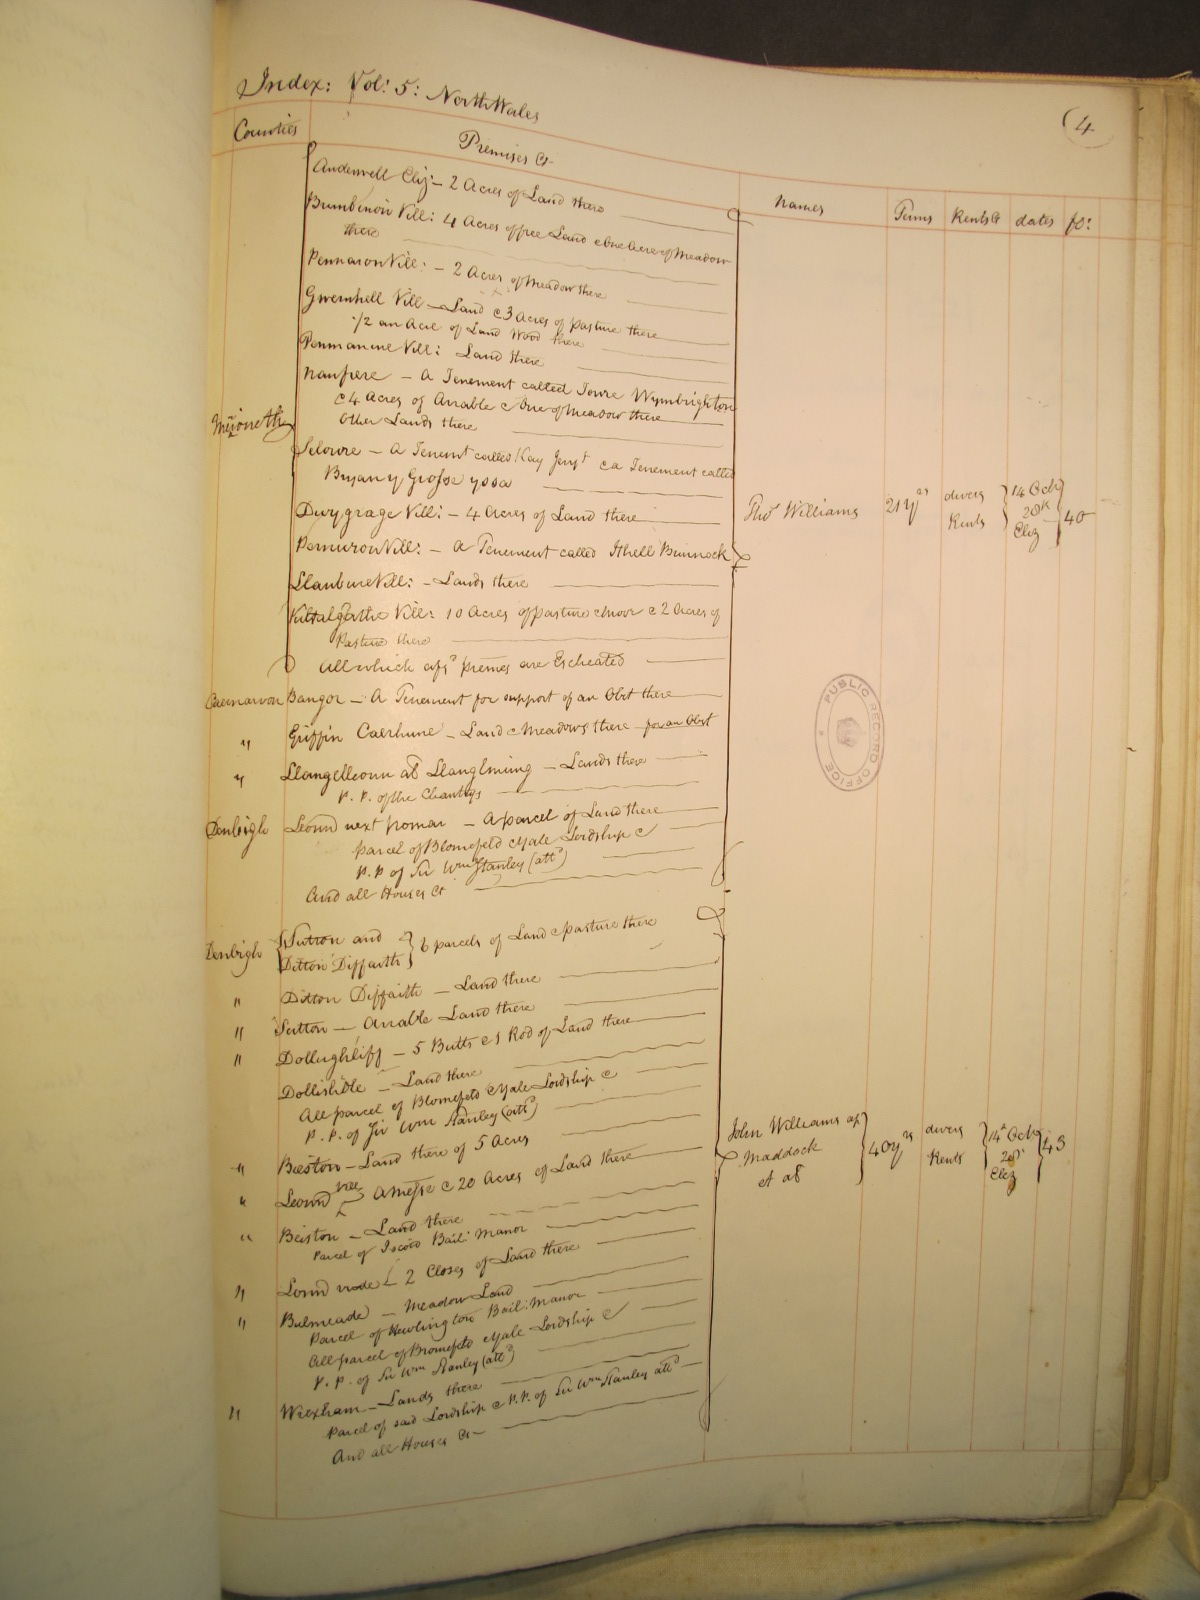 Index: Vol: 5: North Wales
(4
Counties
Premises &c
Names
Terms
Rents &c
dates
fo:
Merioneth
Anderwell Cliz: — 2 Acres of Land there
Bumbenon Vill: 4 Acres of free Land & one Acre of Meadow
there
Pennaron Vill: — 2 Acres of Meadow there
Gwernhell Vill — Land & 3 Acres of Pasture there
1/2 an Acre of Land Wood there
Penmanune Vill: Land there
Nanfrere — A Tenement called Towre Wymbrighton
& 4 Acres of Arrable & One of Meadow there
Other Lands there
Selowre — A Tenemt called Kay Jenyt & a Tenement called
Bryany Grosse yssa
Dwygrage Vill: — 4 Acres of Land there
Thos Williams
21 yrs
divers
Rents
14 Octr
28th
Eliz
40
Pernuron Vill: — A Tenement called Ithell Bunnock
Llanbure Vill: — Lands there
Kiltalgarthe Vill: 10 Acres of pasture & moor & 2 Acres of
Pasture there
All which afsd premes are Escheated
Caernarvon Bangor — A Tenement for support of an Obit there
" Griffin Caerhune — Land & Meadows there for an Obit
" Llangelleonn als Llanglining — Lands there
P. P. of the Chantrys
PUBLIC RECORD OFFICE
Denbigh Leonn next Promar — A parcel of Land there
Parcel of Blomefeld & Yale Lordship &
P. P of Sir Wm Stanley (attd)
And all Houses &c
Denbigh Sutton and
Ditton Diffaith
6 parcels of Land & pasture there
" Ditton Diffaith — Land there
" Sutton — Arrable Land there
" Dolleghliff — 5 Butts & 1 Rod of Land there
Dollislidle — Land there
All parcel of Blomefeld & Yale Lordship &
P. P. of Sir Wm Stanley (attd)
" Beeston — Land there of 5 Acres
John Williams ap
Maddock
et als
40 yrs
divers
Rents
14 Octr
28
Eliz
43
" Leonn A Messe & 20 Acres of Land there
" Beiston — Land there
Parcel of Iscoid Bail: Manor
" Leonn 2 Closes of Land there
" Bulmeade — Meadow Land
Parcel of Hewlington Bail: Manor
All parcel of Bromefeld & Yale Lordship &
P. P. of Sir Wm Stanley (attd)
" Wrexham — Lands there
Parcel of said Lordship & P. P. of Sir Wm Stanley attd
And all Houses &c